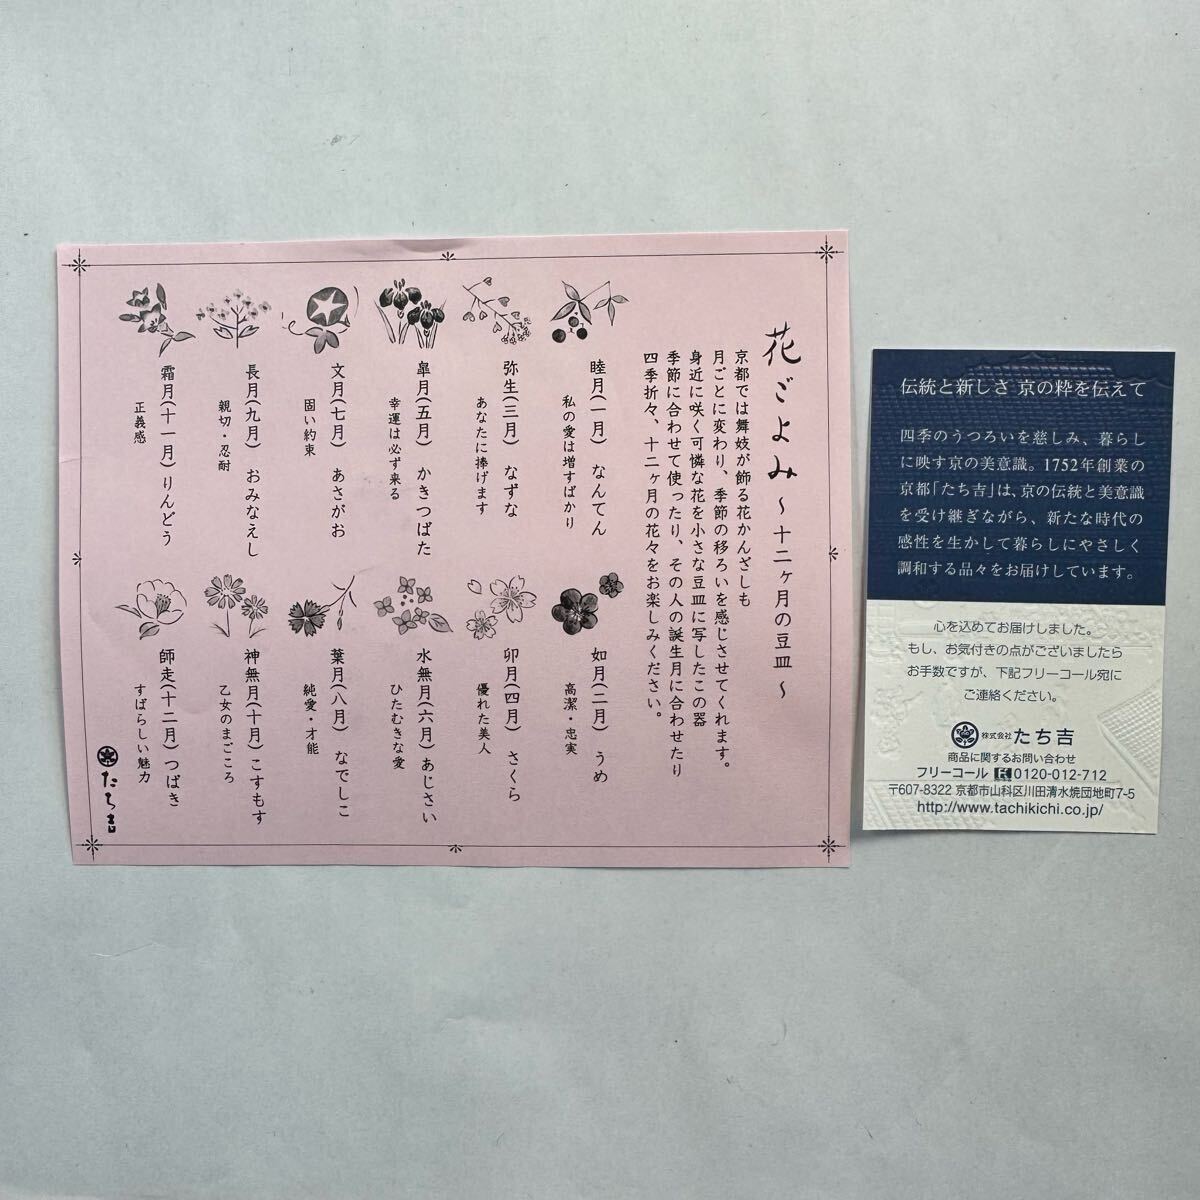 花ごよみ ~十二ヶ月の豆皿~
京都では舞妓が飾る花かんざしも
月ごとに変わり、季節の移ろいを感じさせてくれます。
身近に咲く可憐な花を小さな豆皿に写したこの器
季節に合わせて使ったり、その人の誕生月に合わせたり
四季折々、十二ヶ月の花々をお楽しみください。
睦月(一月) なんてん
私の愛は増すばかり
如月(二月) うめ
高潔・忠実
弥生(三月) なずな
あなたに捧げます
卯月(四月) さくら
優れた美人
皐月(五月) かきつばた
幸運は必ず来る
水無月(六月) あじさい
ひたむきな愛
文月(七月) あさがお
固い約束
葉月(八月) なでしこ
純愛・才能
長月(九月) おみなえし
親切・忍耐
神無月(十月) こすもす
乙女のまごころ
霜月(十一月) りんどう
正義感
師走(十二月) つばき
すばらしい魅力
たち吉
伝統と新しさ 京の粋を伝えて
四季のうつろいを慈しみ、暮らし
に映す京の美意識。1752年創業の
京都「たち吉」は、京の伝統と美意識
を受け継ぎながら、新たな時代の
感性を生かして暮らしにやさしく
調和する品々をお届けしています。
心を込めてお届けしました。
もし、お気付きの点がございましたら
お手数ですが、下記フリーコール宛に
ご連絡ください。
株式会社 たち吉
商品に関するお問い合わせ
フリーコール 0120-012-712
〒607-8322 京都市山科区川田清水焼団地町7-5
http://www.tachikichi.co.jp/